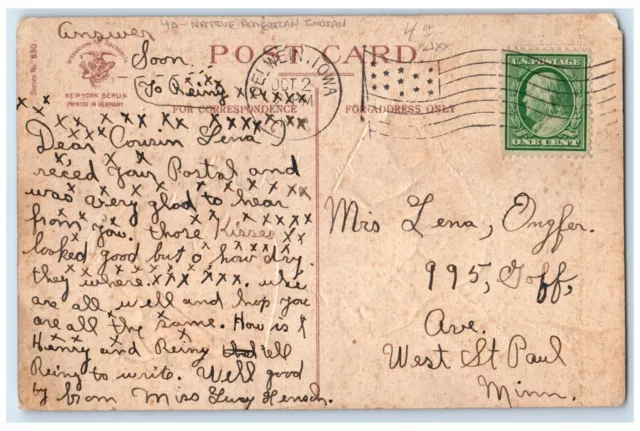 40- NATIVE AMERICAN INDIAN
4@
Answer
Soon.
POST CARD
Series No. 830
INTERNATIONAL ART PUBL. CO.
NEW-YORK BERLIN
PRINTED IN GERMANY
OELWEIN, IOWA
OCT 2
M
U.S. POSTAGE
ONE CENT
FOR CORRESPONDENCE
FOR ADDRESS ONLY
(To Reiny x x x x x
x x x x x x x x x x x
Dear Cousin Lena)
reced your Postal and
was very glad to hear
from you. those Kisses
looked good but o how dry.
they where. x x x. whe
are all well and hop you
are all the same. How is
Henny and Reiny tell
Reiny to write. Well good
by from Miss Lucy Hensch.
Mrs Lena, Ongfer.
995, Goff,
Ave.
West St Paul
Minn.